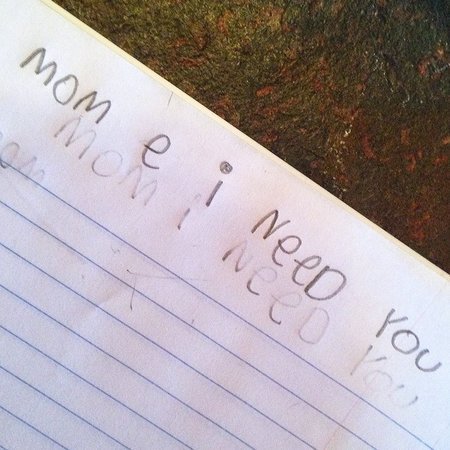 MOM e i NeeD YOU
MOM i NeeD YOU